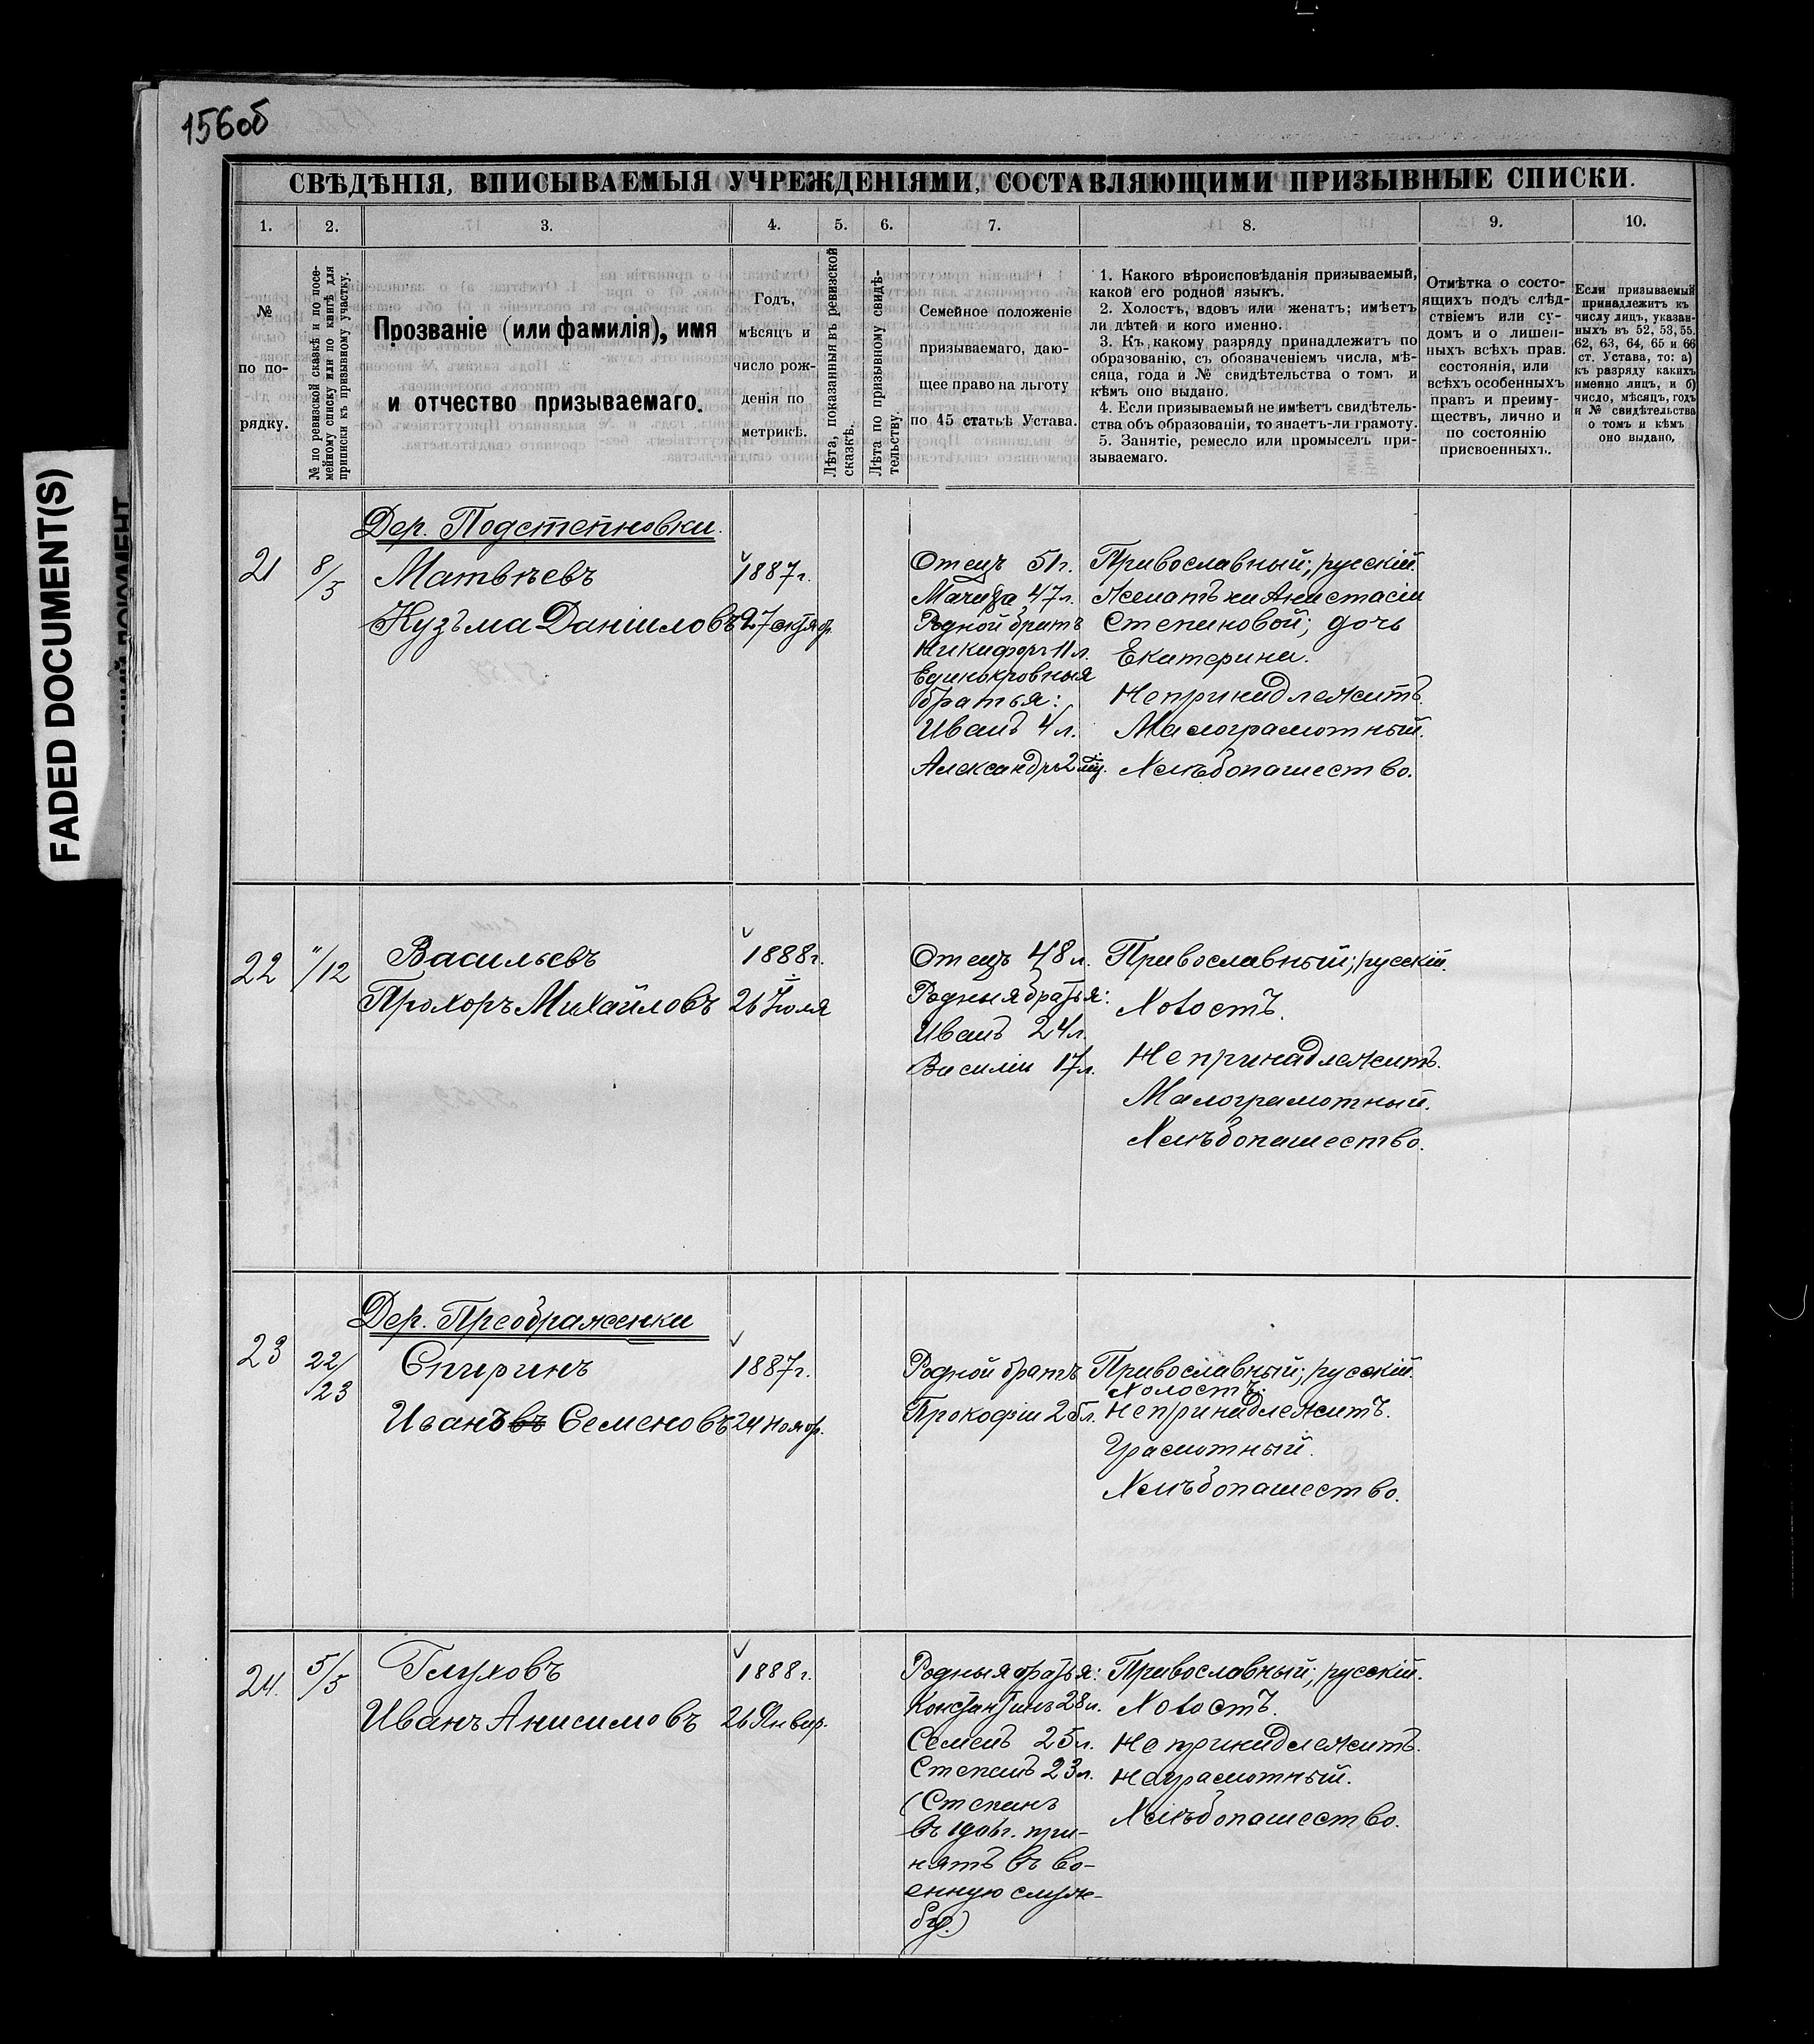 156об
СВѢДѢНІЯ, ВПИСЫВАЕМЫЯ УЧРЕЖДЕНІЯМИ, СОСТАВЛЯЮЩИМИ ПРИЗЫВНЫЕ СПИСКИ.
1. 2. 3. 4. 5. 6. 7. 8. 9. 10.
№
по по-
рядку.
№ по ревизской сказкѣ и по посе-
мейному списку или по книгѣ для
приписки къ призывному участку.
Прозваніе (или фамилія), имя
и отчество призываемаго.
Годъ,
мѣсяцъ и
число рож-
денія по
метрикѣ.
Лѣта, показанныя въ ревизской
сказкѣ.
Лѣта по призывному свидѣ-
тельству.
Семейное положеніе
призываемаго, даю-
щее право на льготу
по 45 статьѣ Устава.
1. Какого вѣроисповѣданія призываемый,
какой его родной языкъ.
2. Холостъ, вдовъ или женатъ; имѣетъ
ли дѣтей и кого именно.
3. Къ какому разряду принадлежитъ по
образованію, съ обозначеніемъ числа, мѣ-
сяца, года и № свидѣтельства о томъ и
кѣмъ оно выдано.
4. Если призываемый не имѣетъ свидѣтель-
ства объ образованіи, то знаетъ-ли грамоту.
5. Занятіе, ремесло или промыселъ при-
зываемаго.
Отмѣтка о состо-
ящихъ подъ слѣд-
ствіемъ или су-
домъ и о лишен-
ныхъ всѣхъ прав.
состоянія, или
всѣхъ особенныхъ
правъ и преиму-
ществъ, лично и
по состоянію
присвоенныхъ.
Если призываемый
принадлежитъ къ
числу лицъ, указан-
ныхъ въ 52, 53, 55.
62, 63, 64, 65 и 66
ст. Устава, то: а)
къ разряду какихъ
именно лицъ, и б)
число, мѣсяцъ, годъ
и № свидѣтельства
о томъ и кѣмъ
оно выдано.
Дер. Подстепновки.
21
8/5
Матвѣевъ
Кузьма Даніиловъ
1887г.
27 октябр.
Отецъ 51г.
Мачиха 47л.
Родной братъ
Никифоръ 11л.
Единокровныя
братья:
Иванъ 4л.
Александръ 2 мѣц.
Православный; русскій.
Женатъ на Анастасіи
Степановой; дочь
Екатерина.
Не принадлежитъ.
Малограмотный.
Хлѣбопашество.
22
"/12
Васильевъ
Прохоръ Михайловъ
1888г.
26 Іюля
Отецъ 48л.
Родныя братья:
Иванъ 24л.
Василій 17л.
Православный; русскій.
Холостъ.
Не принадлежитъ.
Малограмотный.
Хлѣбопашество.
Дер. Преображенки
23
22/23
Спиринъ
Иванъ въ Семеновъ
1887г.
24 Ноябр.
Родной братъ
Прокофій 25л.
Православный; русскій.
Холостъ.
Не принадлежитъ.
Грамотный.
Хлѣбопашество.
24.
5/5
Глуховъ
Иванъ Анисимовъ
1888г.
26 Январ.
Родныя братья:
Константинъ 28л.
Семенъ 25л.
Степанъ 23л.
(Степанъ
въ 1906г. при-
нятъ въ во-
енную служ-
бу.)
Православный; русскій.
Холостъ.
Не принадлежитъ.
Неграмотный.
Хлѣбопашество.
FADED DOCUMENT(S)